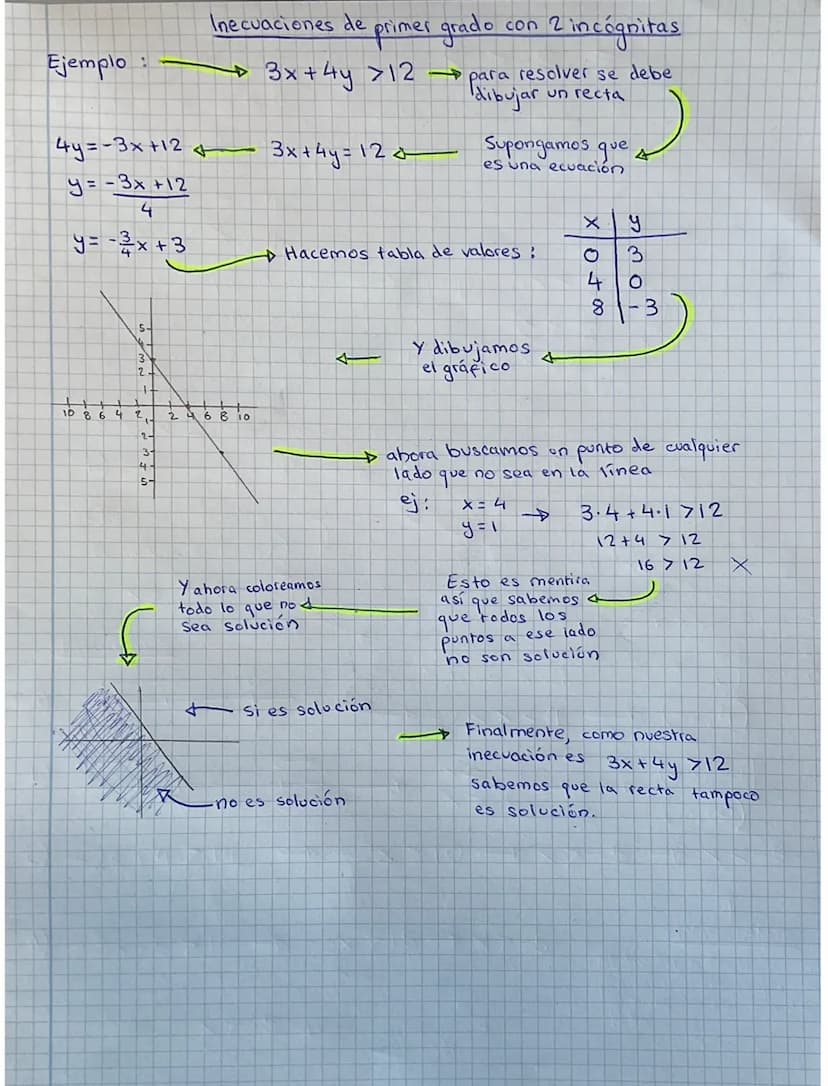 Inecuaciones de primer grado con 2 incógnitas
Ejemplo : 3x+4y >12 para resolver se debe
dibujar un recta
Supongamos que
es una ecuación
3x+4y=12
4y=-3x+12
y = -3x+12
4
y = -3/4x+3
Hacemos tabla de valores :
x y
0 3
4 0
8 -3
Y dibujamos
el gráfico
5
4
3
2
1
10 8 6 4 2 2 4 6 8 10
1
2
3
4
5
ahora buscamos un punto de cualquier
lado que no sea en la línea
ej: x=4
y=1
3·4+4·1 >12
12+4 > 12
16 > 12 X
Esto es mentira
así que sabemos
que todos los
puntos a ese lado
no son solución
Y ahora coloreamos
todo lo que no
sea solución
si es solución
no es solución
Finalmente, como nuestra
inecuación es 3x+4y >12
sabemos que la recta tampoco
es solución.